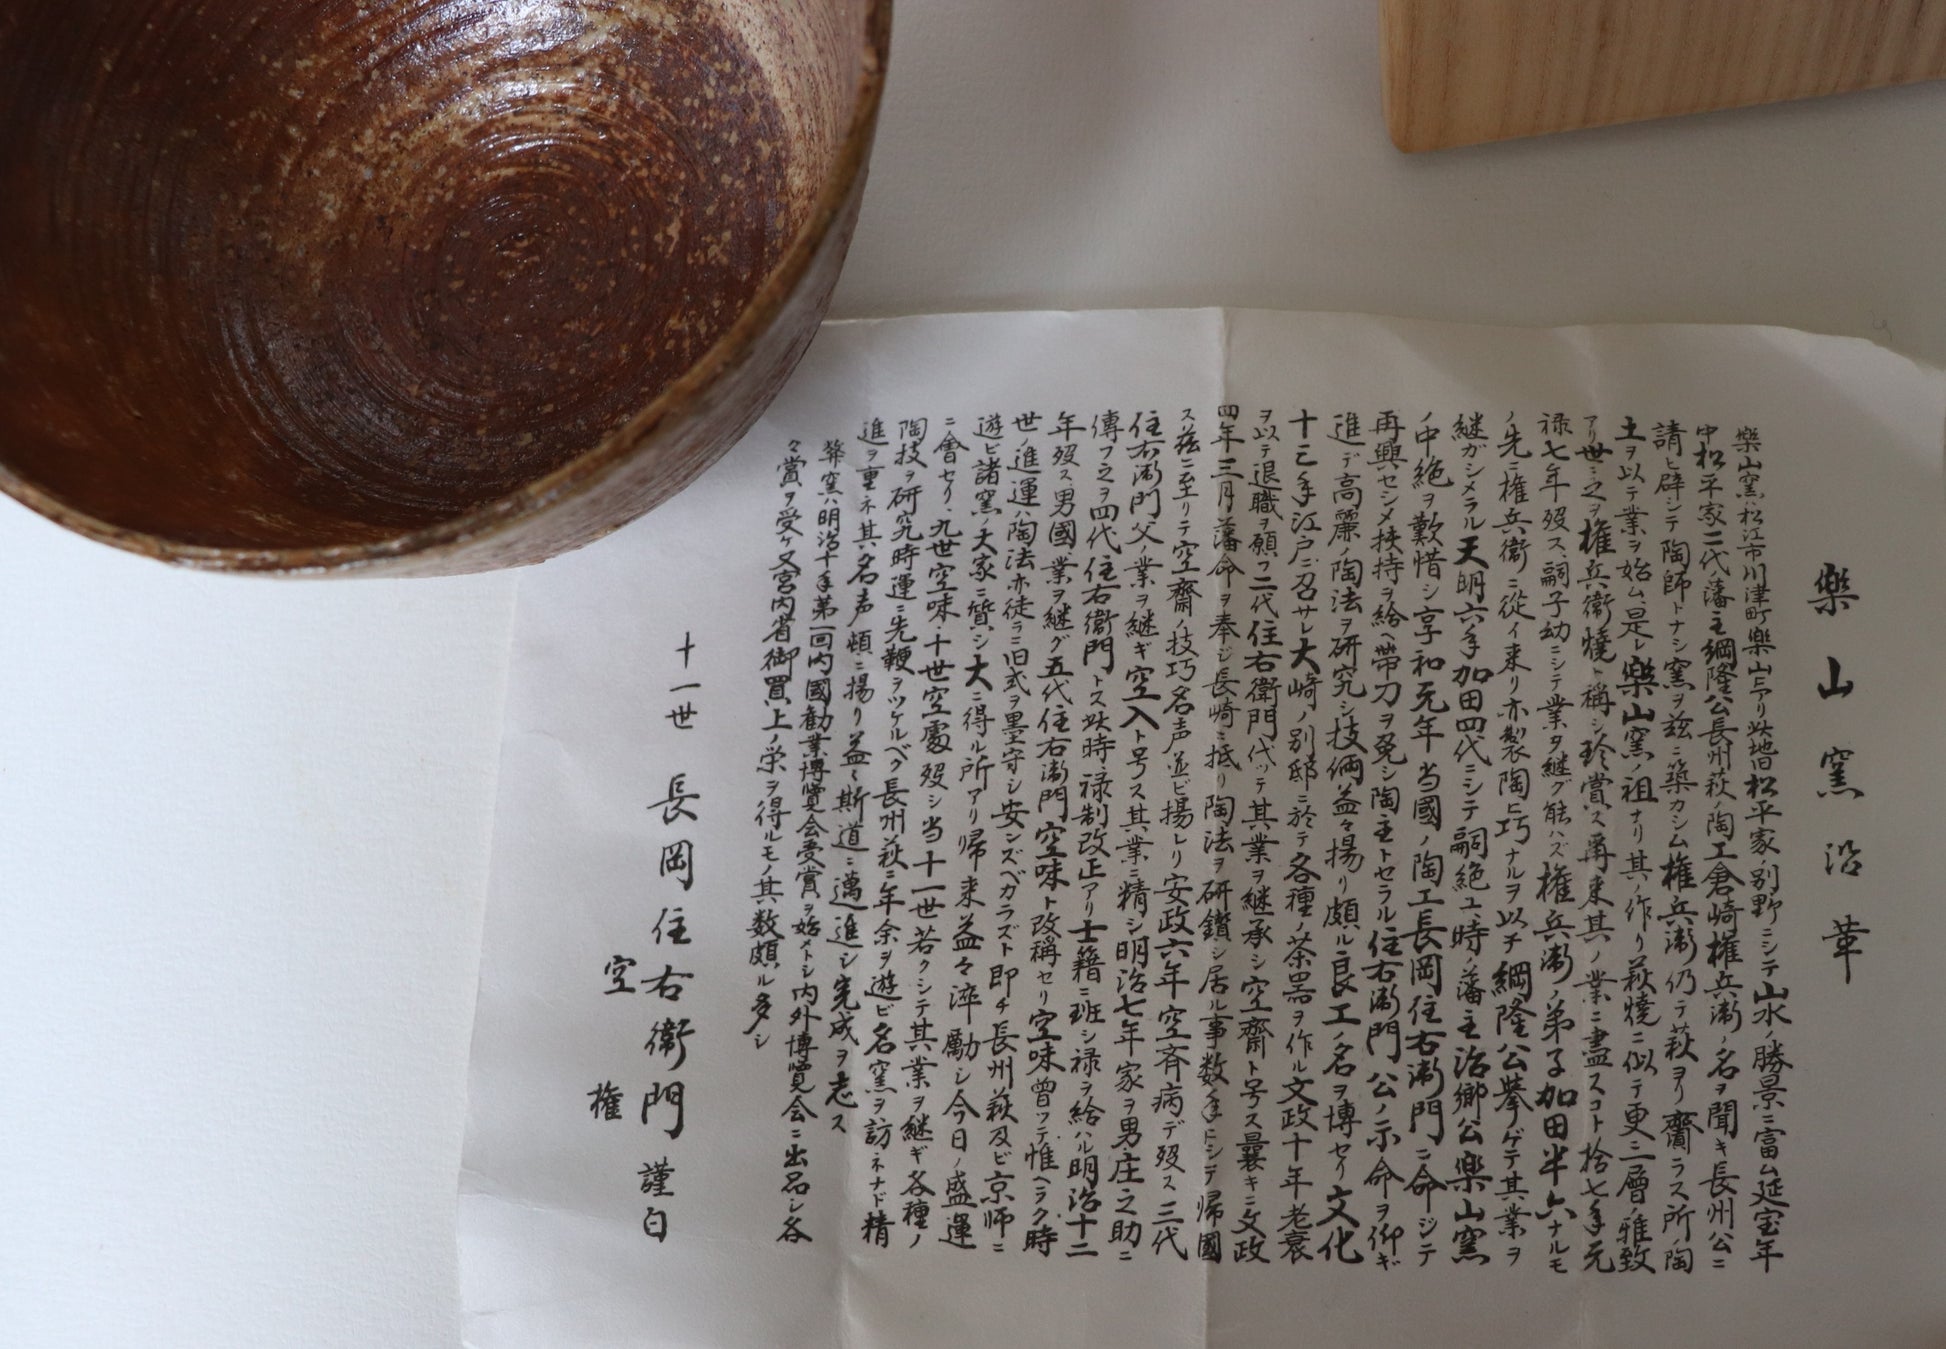 樂山窯沿革
樂山窯ハ松江市川津町樂山ニアリ此地旧松平家ノ別野ニシテ山水ノ勝景ニ富ム延宝年
中松平家二代藩主綱隆公長州萩ノ陶工倉崎権兵衞ノ名ヲ聞キ長州公ニ
請ヒ辟シテ陶師トナシ窯ヲ茲ニ築カシム権兵衞仍テ萩ヨリ齎ラス所ノ陶
土ヲ以テ業ヲ始ム是レ樂山窯ノ祖ナリ其ノ作リ萩燒ニ似テ更ニ層ノ雅致
アリ世ニ之ヲ権兵衞燒ト稱シ珍賞ス爾来其ノ業ニ盡スコト拾七年元
禄七年歿ス嗣子幼ニシテ業ヲ継グ能ハズ権兵衞ノ弟子加田半六ナルモ
ノ先ニ権兵衞ニ從イ来リ亦製陶ニ巧ナルヲ以テ綱隆公挙ゲテ其業ヲ
継ガシメラル天明六年加田四代ニシテ嗣絶エ時ノ藩主治郷公樂山窯
ノ中絶ヲ歎惜シ享和元年当國ノ陶工長岡住右衞門ニ命ジテ
再興セシメ挟持ヲ給ヘ帶刀ヲ免シ陶主トセラル住右衞門公ノ示命ヲ仰ギ
進デ高麗ノ陶法ヲ研究シ技倆益々揚リ頗ル良工ノ名ヲ博セリ文化
十三年江戸ニ召サレ大崎ノ別邸ニ於テ各種ノ茶器ヲ作ル文政十年老衰
ヲ以テ退職ヲ願フ二代住右衞門代ッテ其業ヲ継承シ空齋ト号ス曩キニ文政
四年三月藩命ヲ奉ジ長崎ニ抵リ陶法ヲ研鑽シ居ル事数年ニシテ帰國
ス茲ニ至リテ空齋ノ技巧名声並ビ揚レリ安政六年空斉病デ歿ス三代
住右衞門父ノ業ヲ継ギ空入ト号ス其業ニ精シ明治七年家ヲ男庄之助ニ
傳フ之ヲ四代住右衞門トス此時禄制改正アリ士籍ニ班シ禄ヲ給ハル明治十二
年歿ス男國業ヲ継グ五代住右衞門空味ト改稱セリ空味曾フテ惟ヘラク時
世ノ進運ハ陶法亦徒ラニ旧式ヲ墨守シ安ンズベカラズト即チ長州萩及ビ京師ニ
遊ビ諸窯ノ大家ニ質シ大ニ得ル所アリ帰来益々淬勵シ今日ノ盛運
ニ會セリ、九世空味・十世空處歿シ当十一世若クシテ其業ヲ継ギ各種ノ
陶技ヲ研究時運ニ先鞭ヲツケルベク長州萩ニ年余ヲ遊ビ名窯ヲ訪ネナド精
進ヲ重ネ其名声頓ニ揚リ益々斯道ニ邁進シ完成ヲ志ス
弊窯ハ明治十年第一回内國勧業博覧会受賞ヲ始メトシ内外博覧会ニ出品シ各
々賞ヲ受ケ又宮内省御買上ノ栄ヲ得ルモノ其数頗ル多シ
十一世 長岡住右衞門 謹白
空
権